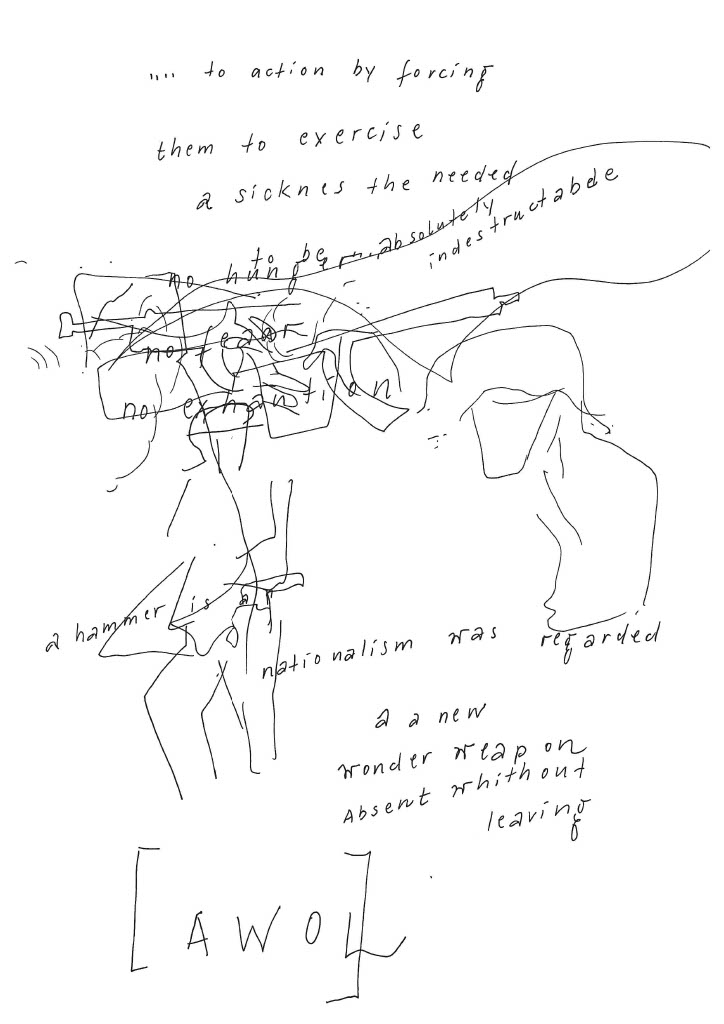 ..,, to action by forcing
them to exercise
a sicknes the needed
to be absolutely
indestructabde
no hunger
no fear
no exhantion
a hammer is an
nationalism was regarded
a a new
wonder weapon
Absent whithout
leaving
[AWOL]